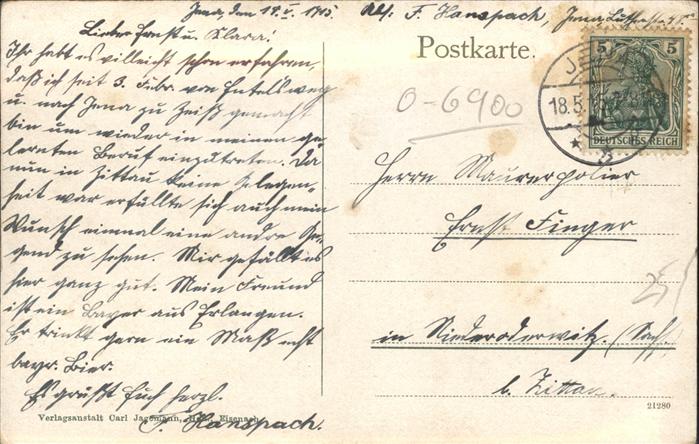 Jena, den 17. V. 1915.
Abs. F. Hanspach, Jena, Lutherstr.
Lieber Ernst u. Klara!
Ihr habt es villeicht schon erfahren,
daß ich seit 3. Febr. von Entelsweg
u. nach Jena zu Zeiß gemacht
bin um wieder in meinen ge-
lernten Beruf einzutreten. Da
nun in Zittau keine Gelegen-
heit war erfüllte sich auch mein
Wunsch einmal eine andre Ge-
gend zu sehen. Mir gefällt es
hier ganz gut. Mein Freund
ist ein Bayer aus Erlangen.
Er trinkt gern ein Maß echt
bayr. Bier.
Es grüßt Euch herzl.
F. Hanspach.
Postkarte.
0-6900
5 5
DEUTSCHES REICH
JENA
18.5.
Herrn Maurerpolier
Ernst Finger
in Niederoderwitz. (Sachs.)
b. Zittau.
Verlagsanstalt Carl Jagemann, Eisenach
21280